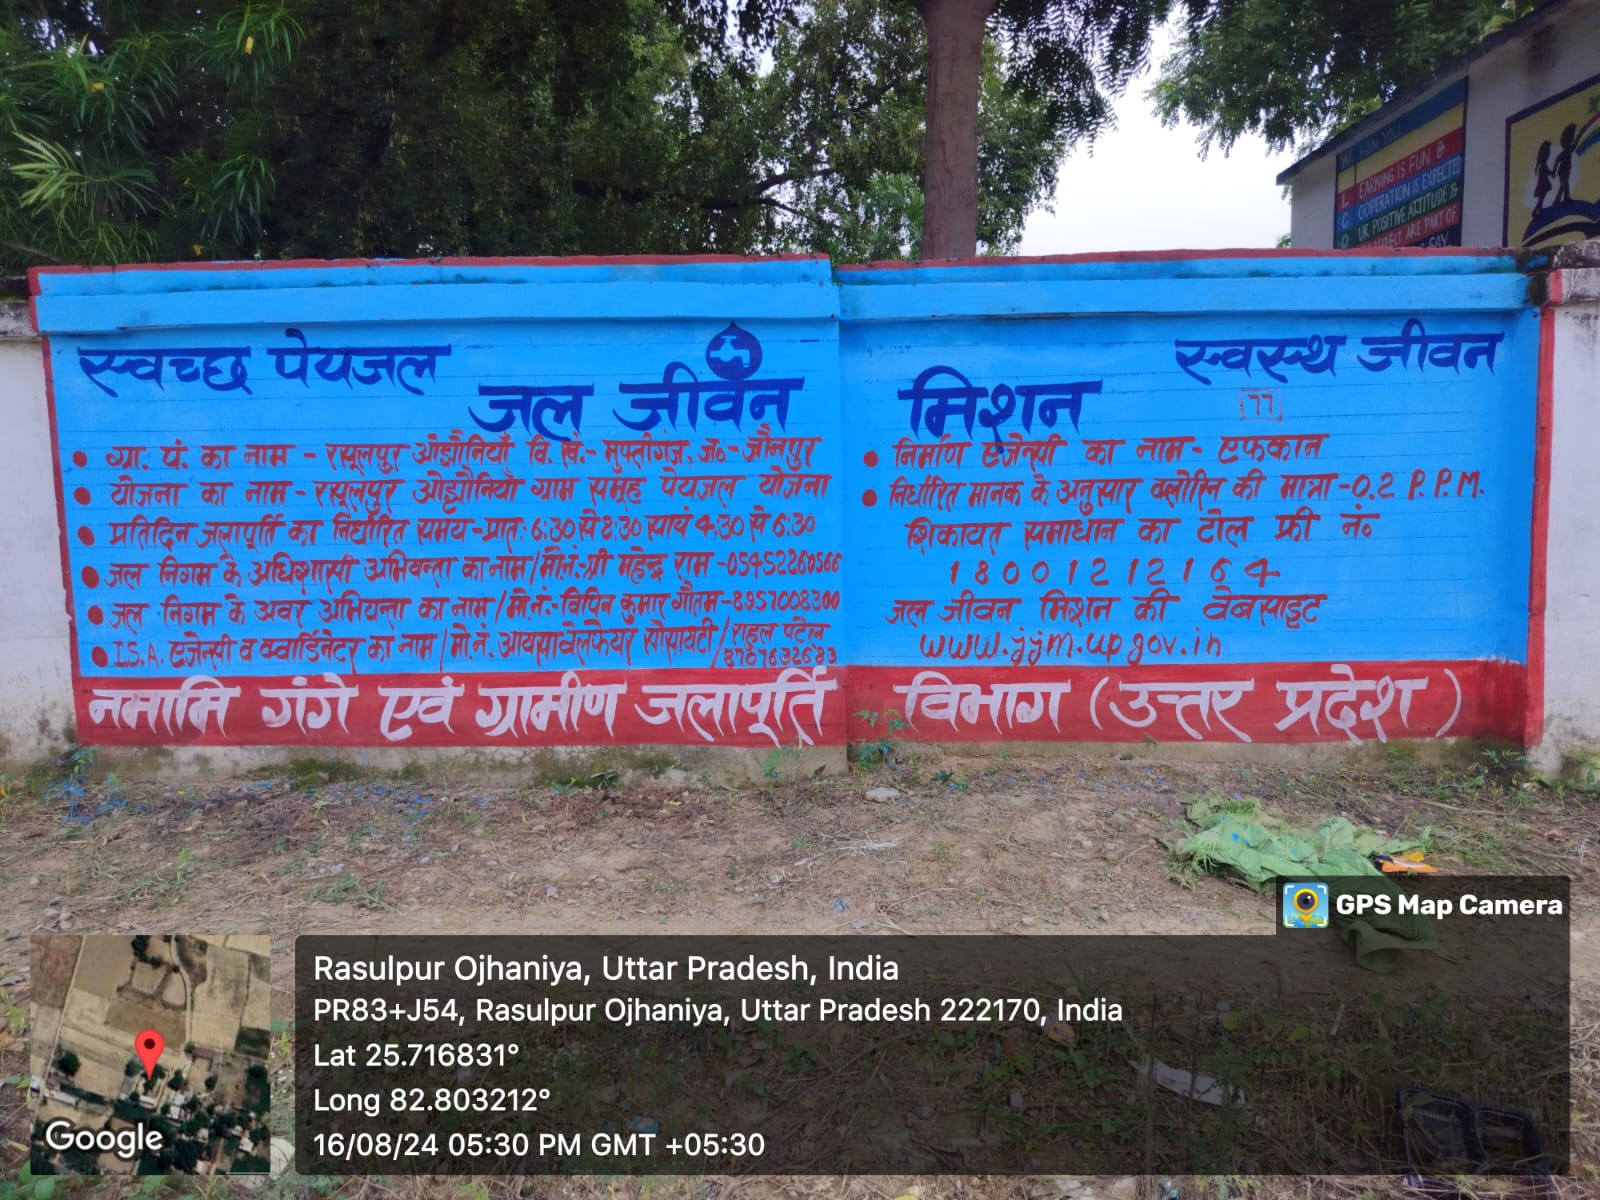 स्वच्छ पेयजल
स्वस्थ जीवन
जल जीवन मिशन
77
• ग्रा. पं. का नाम - रसूलपुर ओझौनियाँ वि. खं.- मुफ्तीगंज, ज०- जौनपुर
• योजना का नाम - रसूलपुर ओझौनियाँ ग्राम समूह पेयजल योजना
• प्रतिदिन जलापूर्ति का निर्धारित समय - प्रात: 6:30 से 8:30 सायं 4:30 से 6:30
• जल निगम के अधिशासी अभियन्ता का नाम / मो.नं.- श्री महेन्द्र राम - 05452260566
• जल निगम के अवर अभियन्ता का नाम / मो.नं.- विपिन कुमार गौतम - 8957008300
• I.S.A. एजेन्सी व क्वार्डिनेटर का नाम / मो.नं. आयसा वेलफेयर सोसायटी / राहुल पटेल
8707632683
• निर्माण एजेन्सी का नाम - एफकान
• निर्धारित मानक के अनुसार क्लोरिन की मात्रा - 0.2 P.P.M.
शिकायत समाधान का टोल फ्री नं०
18001212164
जल जीवन मिशन की वेबसाइट
www.jjm.up.gov.in
नमामि गंगे एवं ग्रामीण जलापूर्ति विभाग (उत्तर प्रदेश)
W HEN YOU
L EARNING IS FUN &
C OOPERATION IS EXPECTED
O UR POSITIVE ATTITUDE &
RESPECT ARE PART OF
GPS Map Camera
Rasulpur Ojhaniya, Uttar Pradesh, India
PR83+J54, Rasulpur Ojhaniya, Uttar Pradesh 222170, India
Lat 25.716831°
Long 82.803212°
16/08/24 05:30 PM GMT +05:30
Google